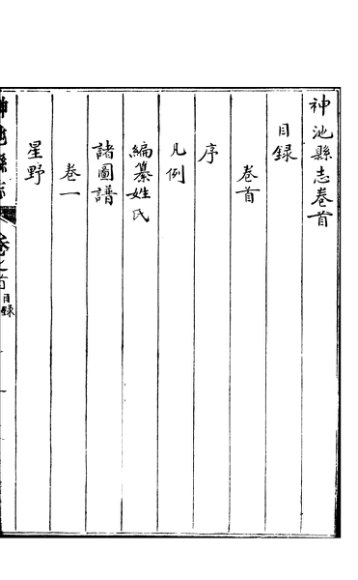 神池縣志卷首
目録
卷首
序
凡例
編纂姓氏
諸圖譜
卷一
星野
神池縣志
卷之首
目録